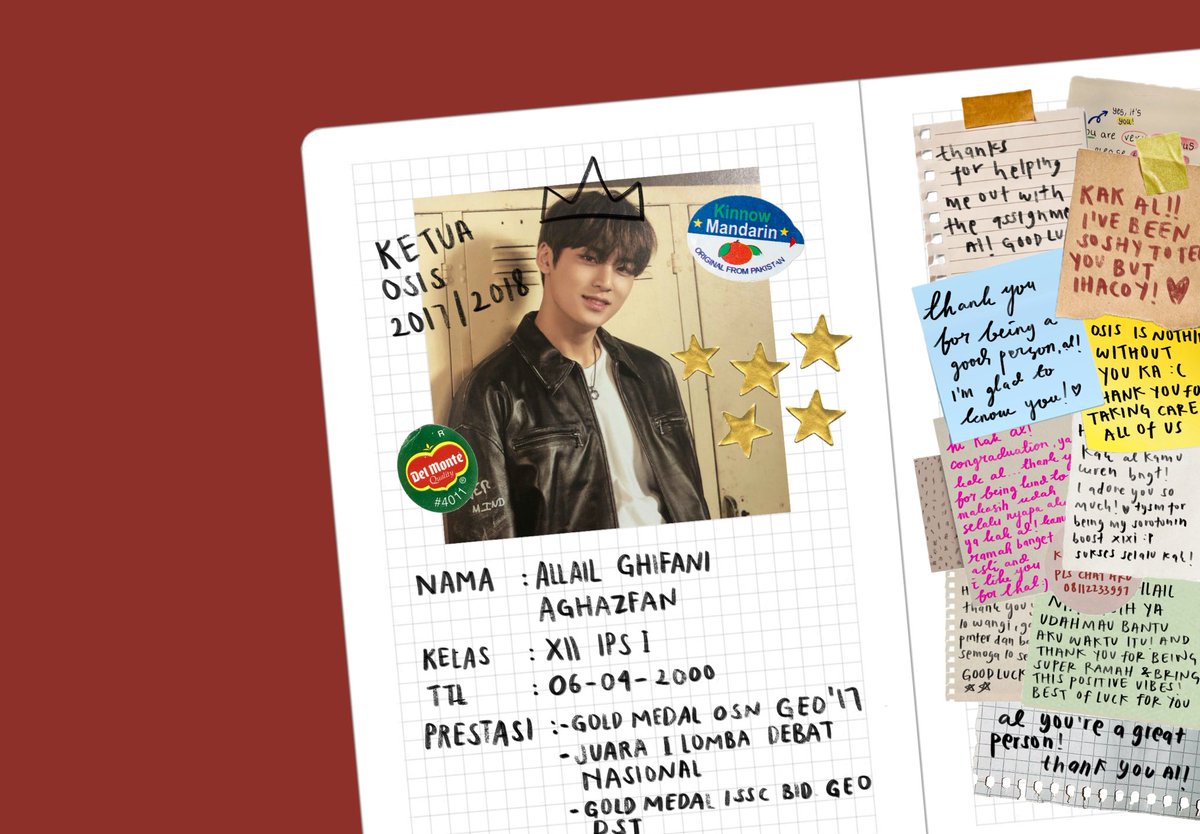 KETUA
OSIS
2017/2018
Kinnow
Mandarin
ORIGINAL FROM PAKISTAN
R
Del Monte
Quality
®
#4011
MIND
NAMA : ALLAIL GHIFANI
AGHAZFAN
KELAS : XII IPS I
TTL : 06-04-2000
PRESTASI : -GOLD MEDAL OSN GEO'17
-JUARA I LOMBA DEBAT
NASIONAL
-GOLD MEDAL ISSC BID GEO
DST
thanks
for helping
me out with
the assignme
Al! GOOD LU
yes, it's
you!
are
KAK AL!!
I'VE BEEN
SO SHY TO TE
YOU BUT
IHACOY! ♥
thank you
for being a
good person, al!
I'm glad to
know you! ♡
OSIS IS NOTHI
WITHOUT
YOU KA :(
THANK YOU FO
TAKING CARE
ALL OF US
hi kak al!
congraduation, ya
kak al... thank y
for being kind to
makasih udah
selalu nyapa aku
ya kak al! kamu
ramah banget
asli and
i like you
for that:)
Kak al kamu
keren bngt!
I adore you so
much! ♥ tysm for
being my serotonin
boost xixi :P
sukses selalu kak!
PLS CHAT AKU
08112233997
thank you
lo wangi, ga
pinter dan ba
semoga lo se
GOOD LUCK
☆☆
YA
UDAH MAU BANTU
AKU WAKTU ITU! AND
THANK YOU FOR BEING
SUPER RAMAH & BRING
THIS POSITIVE VIBES!
BEST OF LUCK FOR YOU
al you're a great
person!
thank you Al!